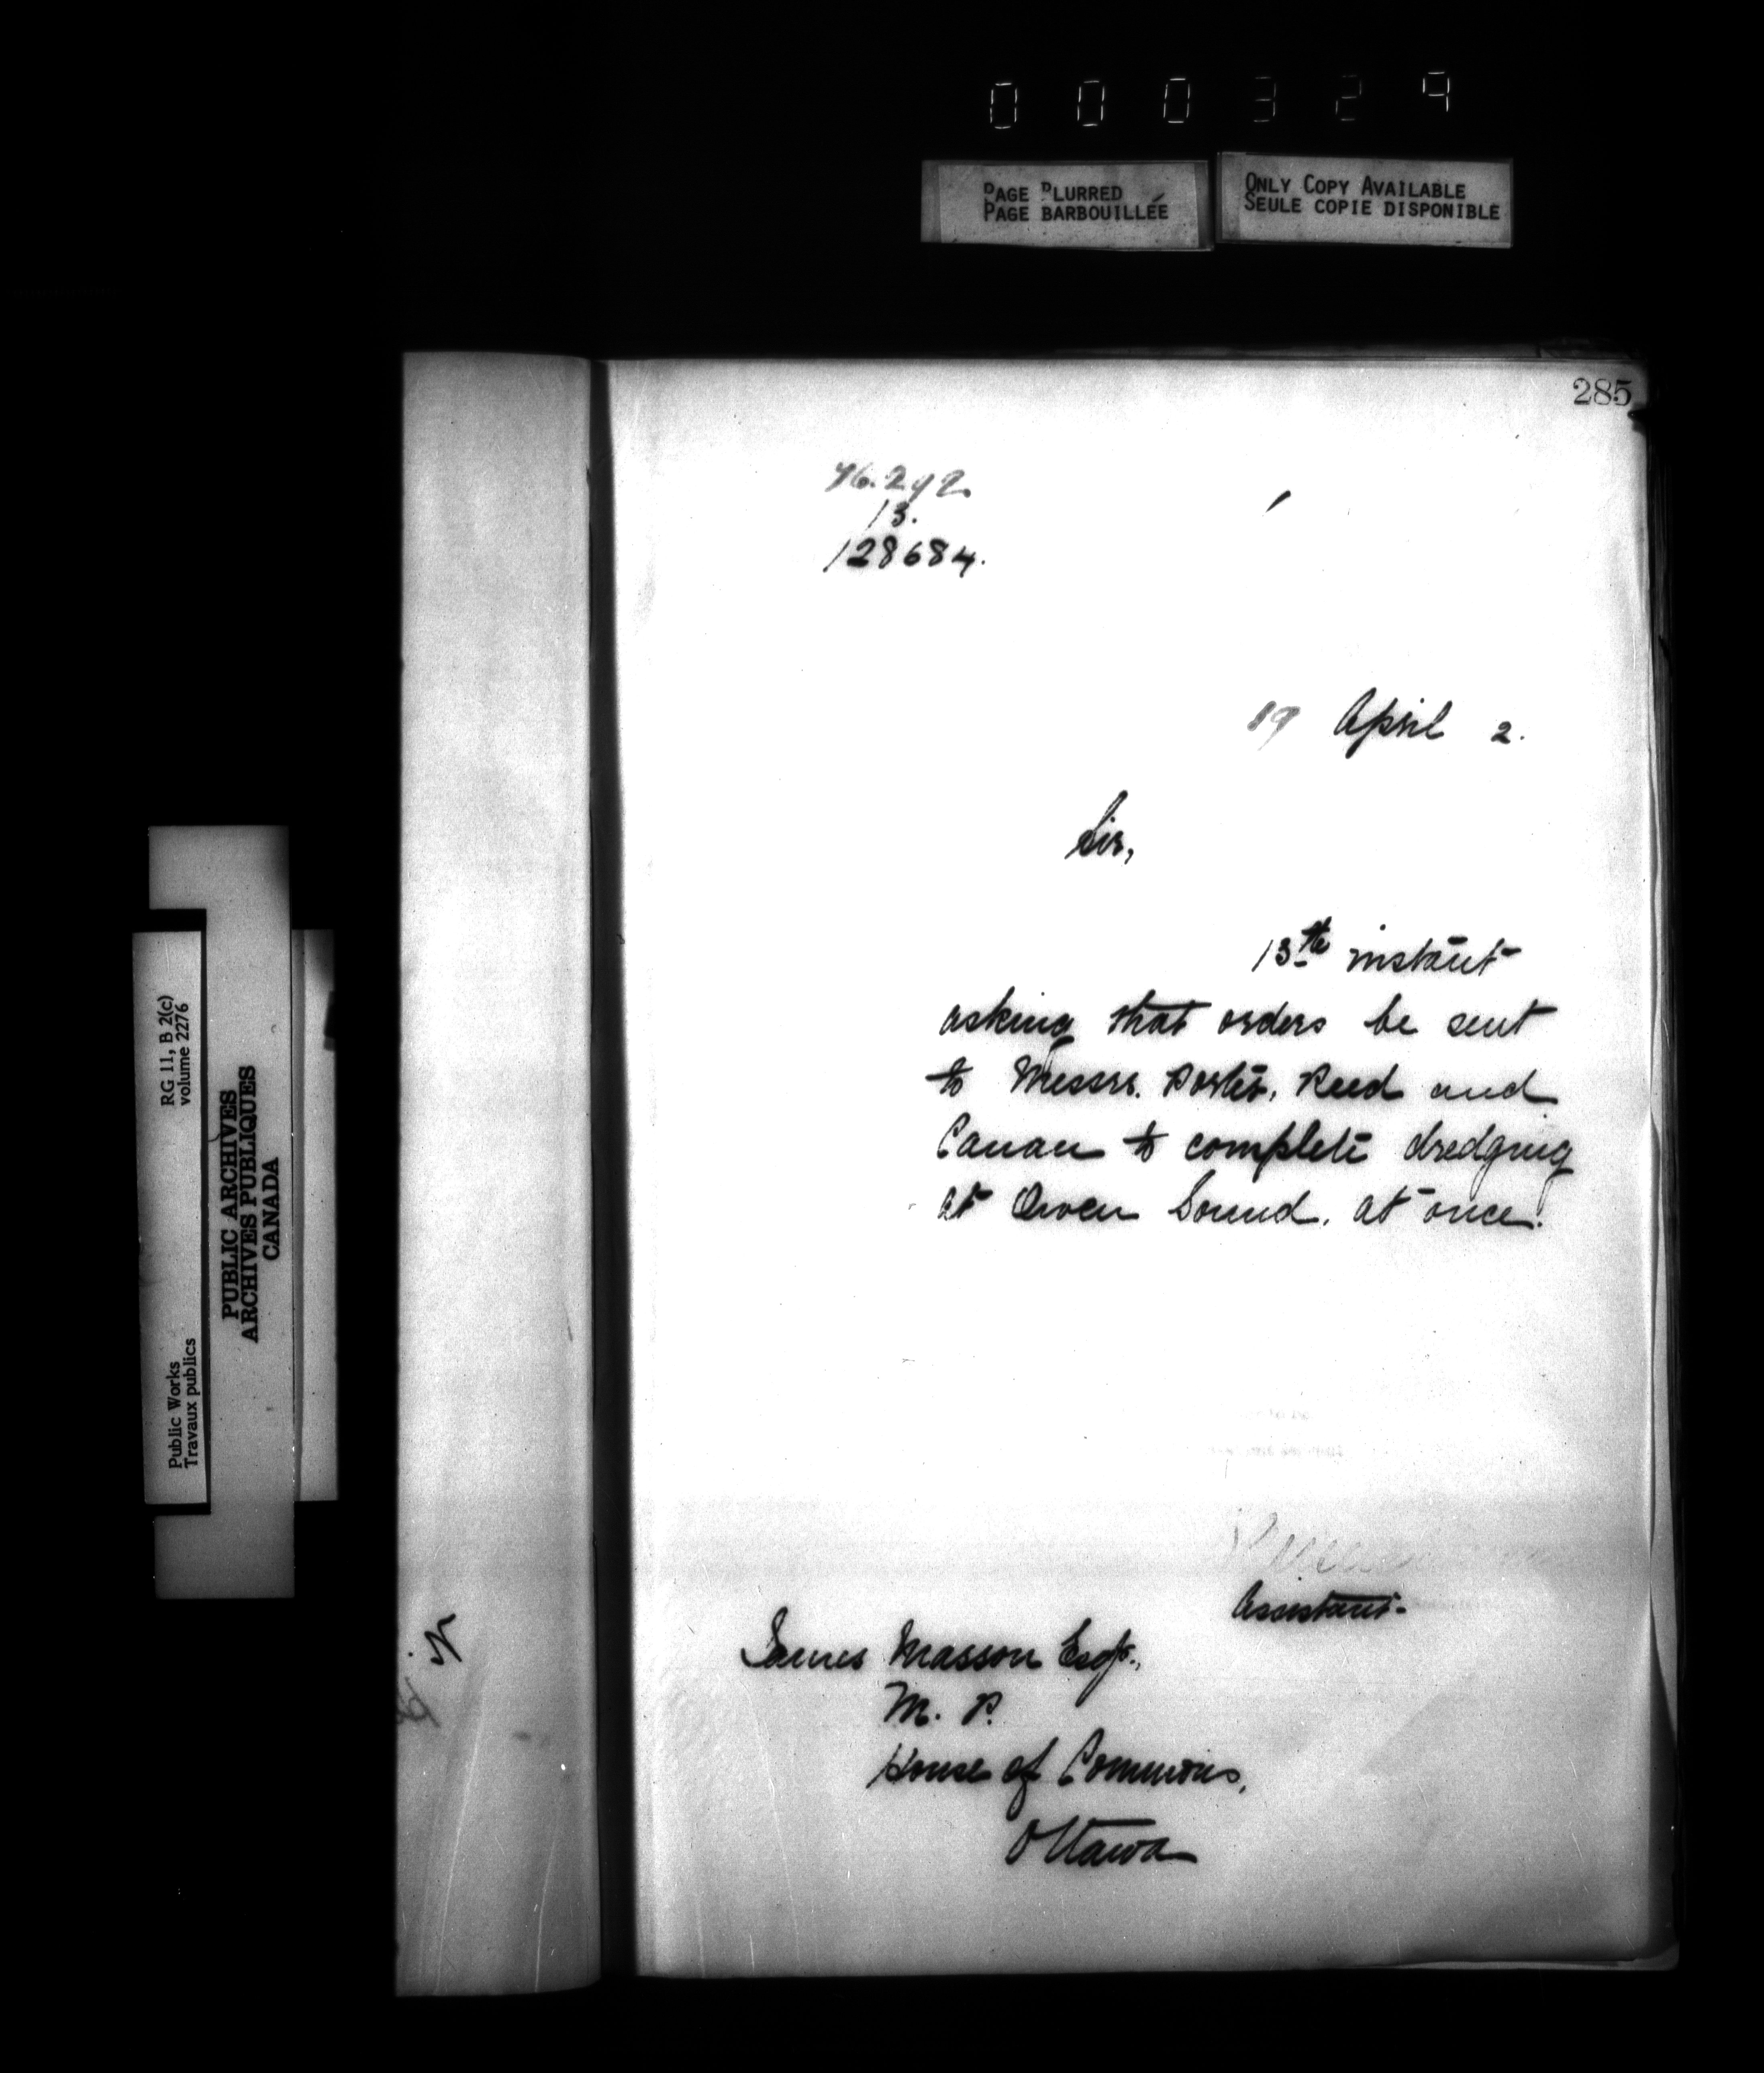 000329
PAGE BLURRED
PAGE BARBOUILLÉE
ONLY COPY AVAILABLE
SEULE COPIE DISPONIBLE
285
13.
128684.
19 April 2.
Sir,
13th instant
asking that orders be sent
to Messrs. Porter, Reed and
Canan to complete dredging
at Owen Sound. at once.
Assistant
James Masson Esqr.,
M. P.
House of Commons,
Ottawa
RG 11, B 2(c)
volume 2276
Public Works
Travaux publics
PUBLIC ARCHIVES
ARCHIVES PUBLIQUES
CANADA